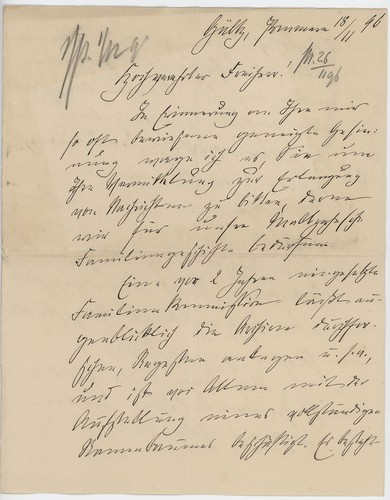 Gültz, Pommern 18/11 96
Hochverehrter Freiherr!
In Erinnerung an Ihre mir
so oft bewiesene geneigte Gesin-
nung wage ich es, Sie um
Ihre Vermittelung zur Erlangung
von Nachrichten zu bitten, deren
wir für unsre Maltzahn'sche
Familiengeschichte bedürfen.
Eine vor 2 Jahren eingesetzte
Familien Kommission läßt au-
genblicklich die Archive durchfor-
schen, Regesten anlegen u.s.w.,
und ist vor Allem mit der
Aufstellung eines vollständigen
Stammbaumes beschäftigt. Es besteht